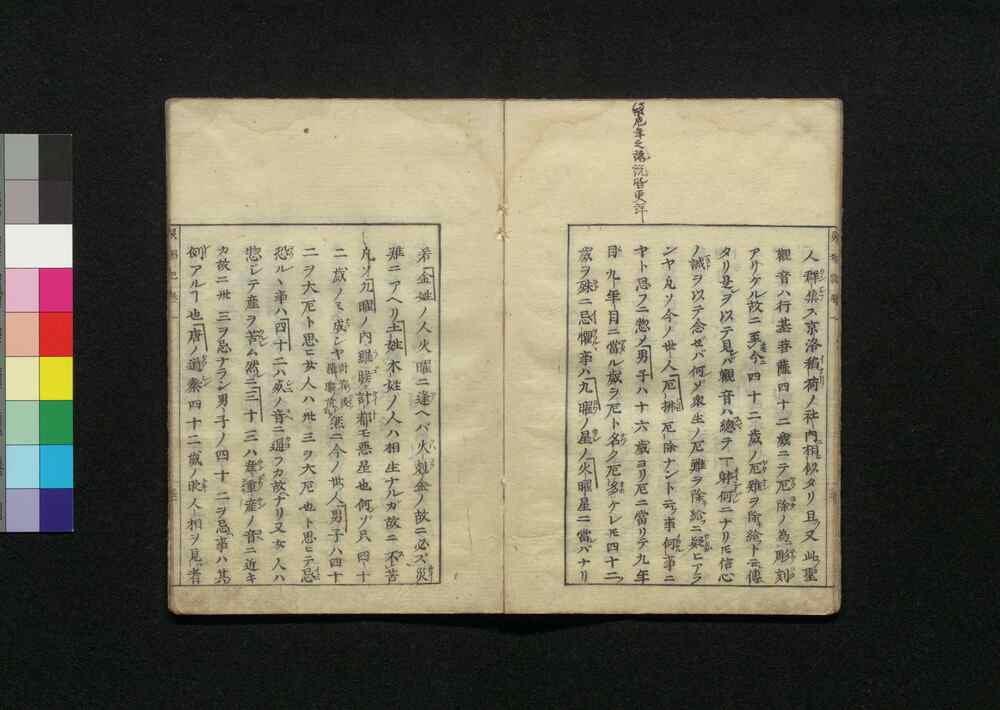 厄年之諸説皆更詳
人群集ス京洛稲荷ノ社内相似タリ且ツ又此ノ聖
觀音ハ行基菩薩四十二歳ニテ厄除ノ為ニ彫刻
アリケル故ニ至テ今ニ四十二歳ノ厄難ヲ除キ給フト云傳ヘ
タリ是ヲ以テ見レバ觀音ハ總テ一躰何ニナリトモ信心
ノ誠ヲ以テ念ゼバ何ゾ衆生ノ厄難ヲ除キ給ニ疑ヒアラ
ンヤ凡ソ今ノ世ノ人厄拂厄除ナント云フ事何ノ事ニ
ヤト思フニ惣ソ男子ハ十六歳ヨリ厄ニ當リテ九年
目九年目ニ當ル歳ヲ厄ト名ク厄多ケレトモ四十二ノ
歳ヲ殊ニ忌懼ル事ハ九曜ノ星ノ火曜星ニ當レバナリ
若金姓ノ人火曜ニ逢ヘバ火尅金ノ故ニ必ズ災
難ニアヘリ土姓木姓ノ人ハ相生ナルガ故ニ不苦
凡ソ九曜ノ内羅睺計都モ悪星也何ゾ只四十
二歳ノミ或ンヤ然ニ今ノ世人男子ハ四十
二ヲ大厄ト思ヒ女人ハ卅三ヲ大厄也ト思ヒテ忌
恐ルヽ事ハ四十二ハ死ノ音ニ通フカ故ナリ又女人ハ
惣シテ産ヲ苦ム然ニ三十三ハ産重産ノ音ニ近キ
カ故ニ卅三ヲ忌ナラン男ノ子ノ四十二ヲ忌事ハ其
例アルヿ也唐ノ道士四十二歳ノ時人相ヲ見ル者